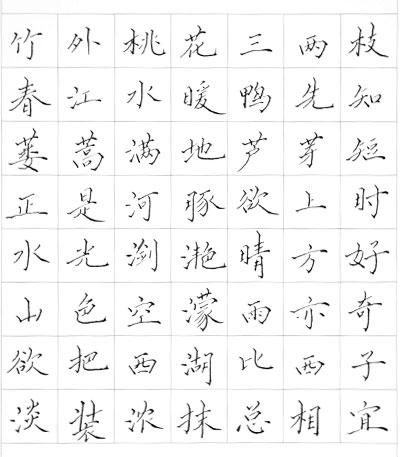 竹外桃花三两枝
春江水暖鸭先知
蒌蒿满地芦芽短
正是河豚欲上时
水光潋滟晴方好
山色空濛雨亦奇
欲把西湖比西子
淡装浓抹总相宜